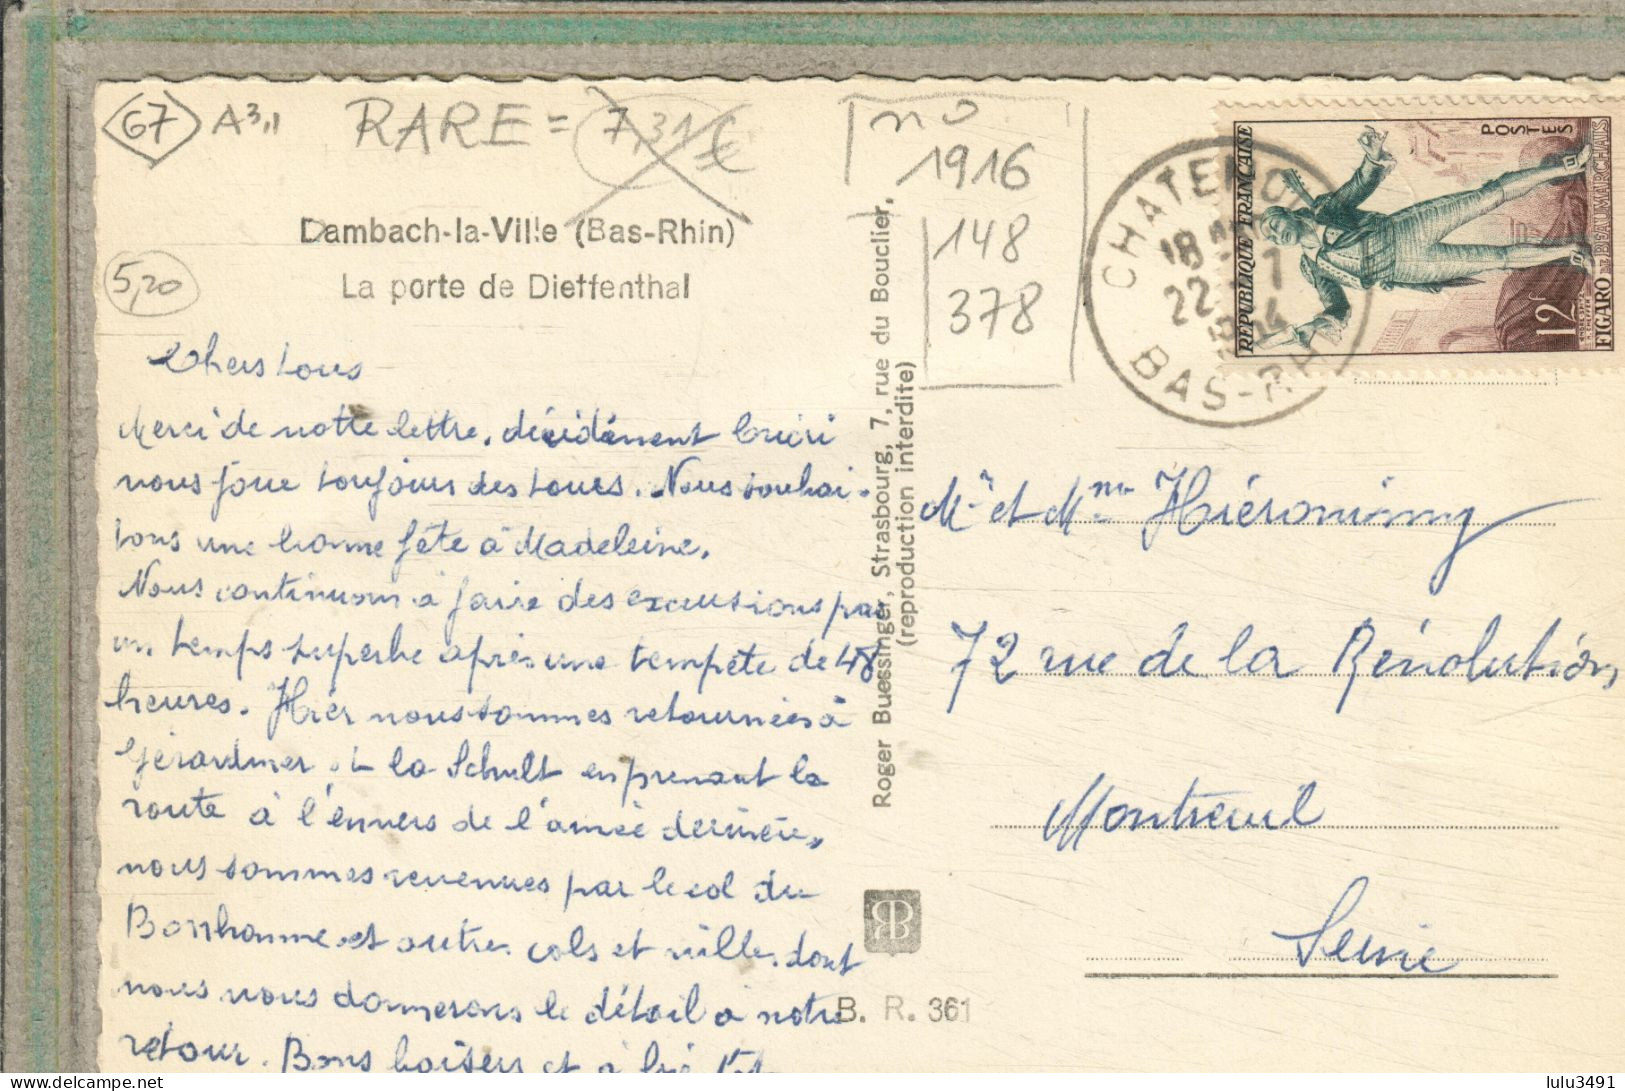 67 A3,1 RARE = 7,31 €
n°
1916
148
378
5,20
Dambach-la-Ville (Bas-Rhin)
La porte de Dieffenthal
Chers tous
Merci de votre lettre, décidément
nous joue toujours des tours. Nous souhai-
tons une bonne fête à Madeleine.
Nous continuons à faire des excursions par
un temps superbe après une tempête de 48
heures. Hier nous sommes retournés à
Gérardmer et la Schult en prenant la
route à l'envers de l'année dernière,
nous sommes revenues par le col du
Bonhomme et autres cols et villes dont
nous vous donnerons le détail à notre
retour. Bons baisers et à
Roger Buessinger, Strasbourg, 7, rue du Bouclier,
(reproduction interdite)
B. R. 361
CHATENOIS
18
22 - 7
1954
BAS-RH
REPUBLIQUE FRANÇAISE
POSTES
12F
FIGARO DE BEAUMARCHAIS
Mr et Mme Hiéronimy
72 rue de la Révolution,
Montreuil
Seine
lulu3491